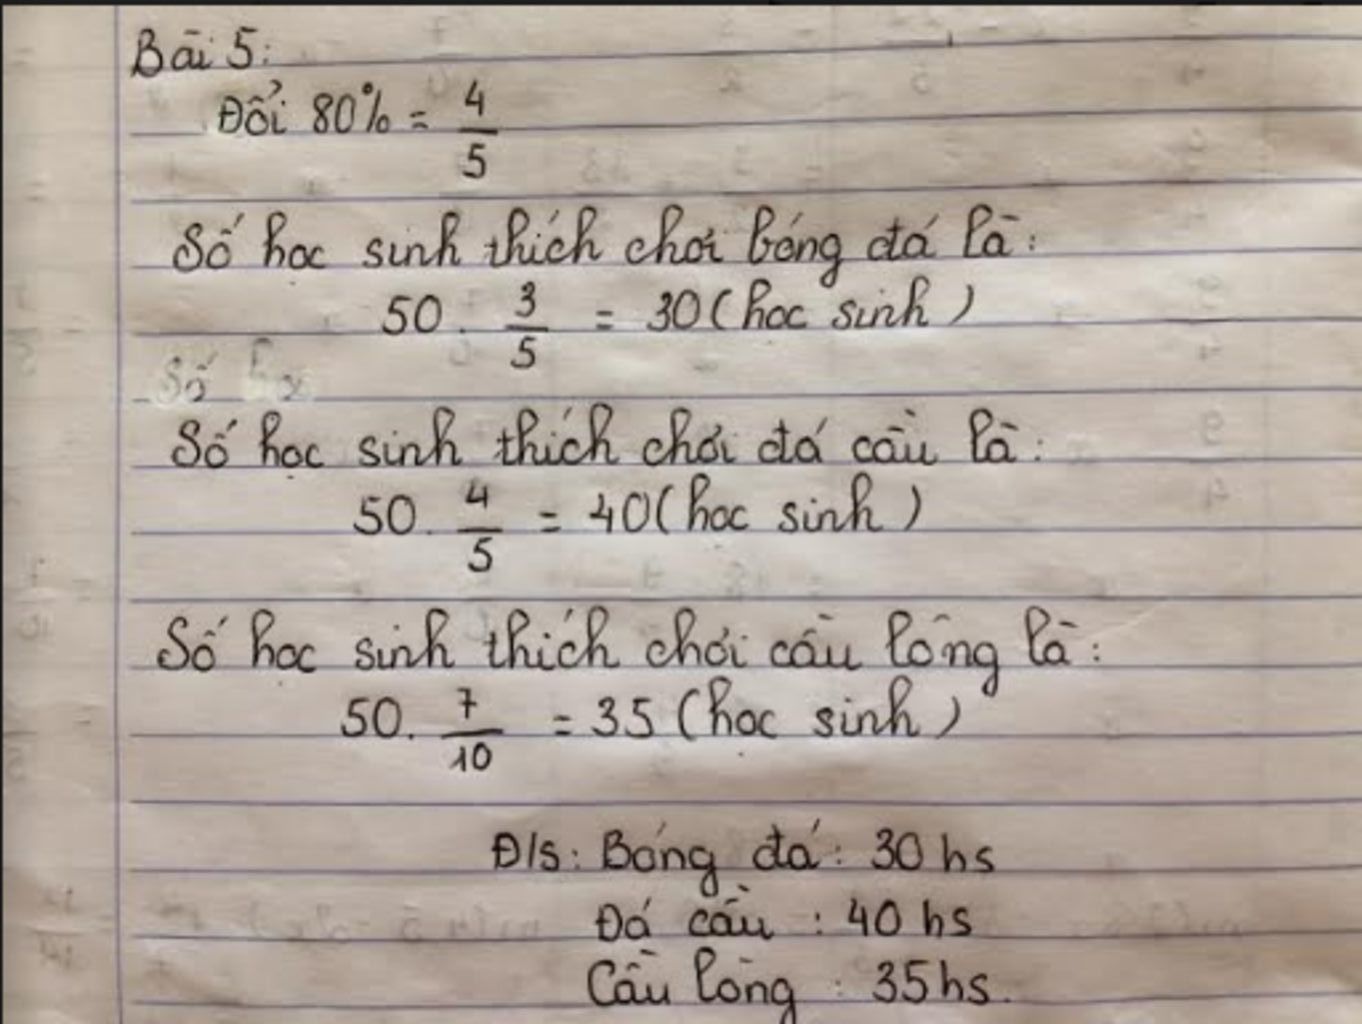 Bài 5:
Đổi 80% = 4/5
Số học sinh thích chơi bóng đá là:
50 . 3/5 = 30 (học sinh)
Số
Số học sinh thích chơi đá cầu là:
50 . 4/5 = 40 (học sinh)
Số học sinh thích chơi cầu lông là:
50 . 7/10 = 35 (học sinh)
Đ/s: Bóng đá : 30 hs
Đá cầu : 40 hs
Cầu lông : 35 hs.